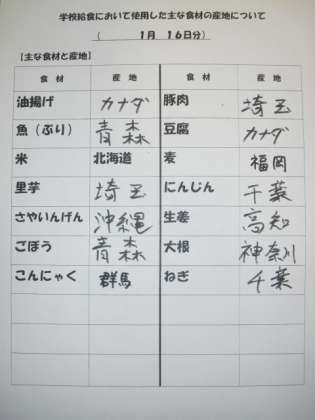 学校給食において使用した主な食材の産地について
( 1月 16日分)
【主な食材と産地】
食 材 産 地 食 材 産 地
油揚げ カナダ 豚肉 埼玉
魚(ぶり) 青森 豆腐 カナダ
米 北海道 麦 福岡
里芋 埼玉 にんじん 千葉
さやいんげん 沖縄 生姜 高知
ごぼう 青森 大根 神奈川
こんにゃく 群馬 ねぎ 千葉